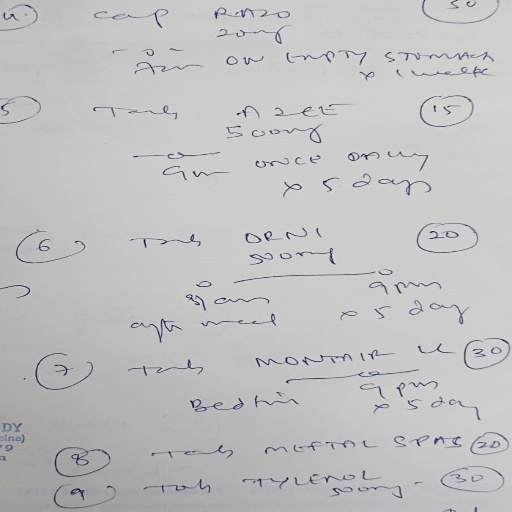 4. cap RAZO 30
20mg
7am ON EMPTY STOMACH
x 1 week
5 Tab AZEE 15
500mg
9am ONCE DAILY
x 5 days
6 Tab ORNI 20
500mg
8am 9pm
after meal x 5 day
7 Tab MONTAIR LC 30
9pm
Bedtime x 5 day
8 Tab MEFTAL SPAS 20
9 Tab TYLENOL - 30
500mg